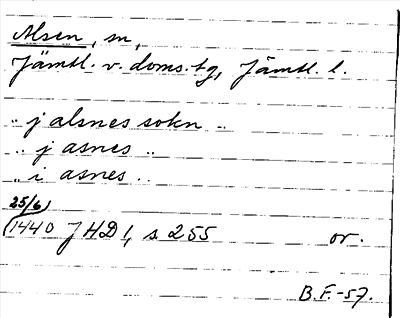 Alsen, sn,
Jämtl. v. doms.tg, Jämtl. l.
.. j alsnes sokn ..
.. j asnes ..
.. i asnes ..
25/6
1440 JHD 1, s 255 or.
B.F.-57.